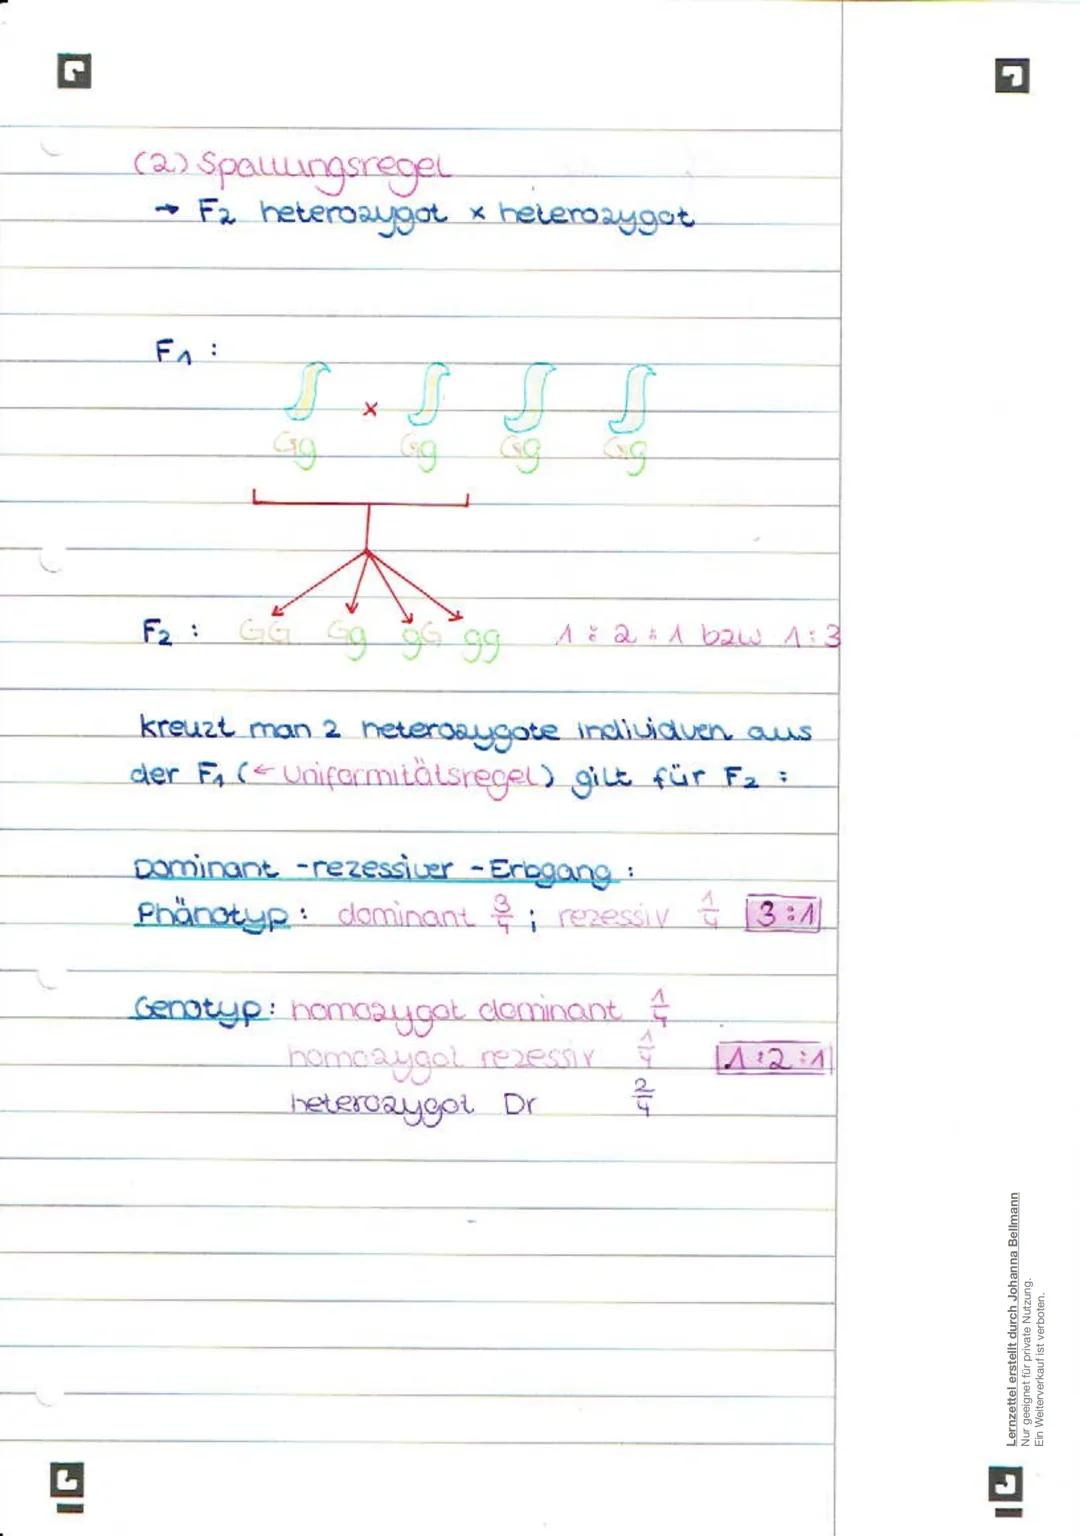 (2) Spaltungsregel
→ F2 heterozygot x heterozygot
F1 :
x
Gg Gg Gg Gg
F2 : GG Gg gG gg 1 : 2 : 1 bzw 1 : 3
kreuzt man 2 heterozygote individuen aus
der F1 (← Uniformitätsregel) gilt für F2 :
Dominant -rezessiver -Erbgang :
Phänotyp : dominant 3/4 ; rezessiv 1/4 3 : 1
Genotyp : homozygot dominant 1/4
homozygot rezessiv 1/4 1 : 2 : 1
heterozygot Dr 2/4
Lernzettel erstellt durch Johanna Bellmann
Nur geeignet für private Nutzung.
Ein Weiterverkauf ist verboten.